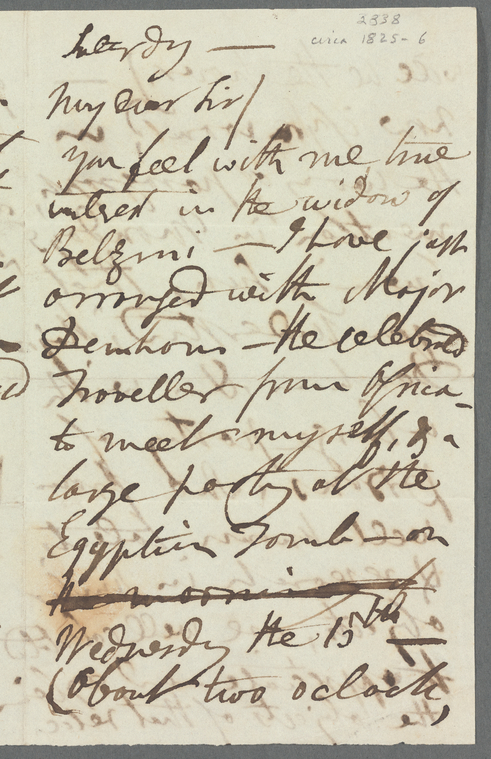 2338
circa 1825-6
My dear Sir/
You feel with me, true
interest in the widow of
Belzoni — I have just
arranged with Major
Denham — the celebrated
Traveller from Africa —
to meet myself, & a
large party at the
Egyptian Tomb — on
the morning of
Wednesday the 15th —
(about two oclock,